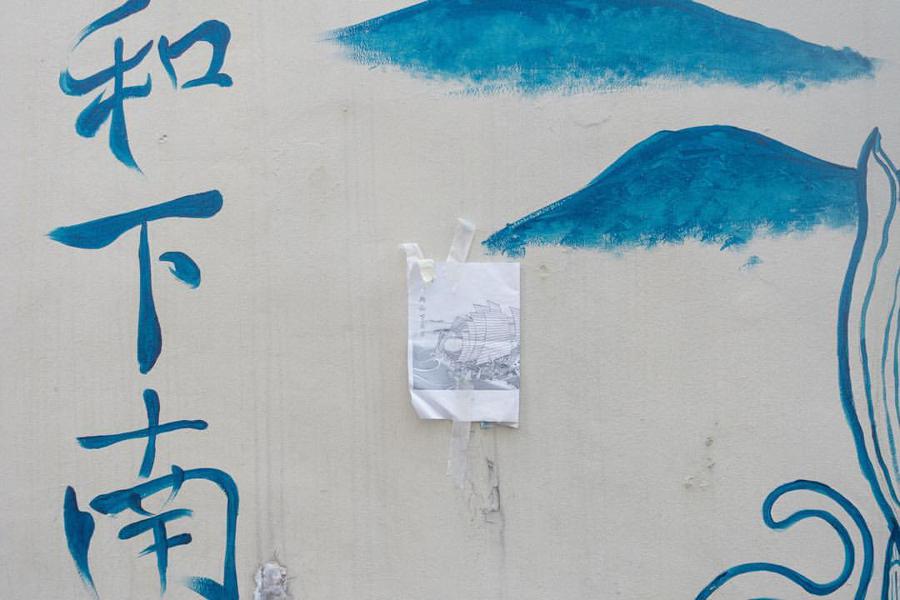 和下南